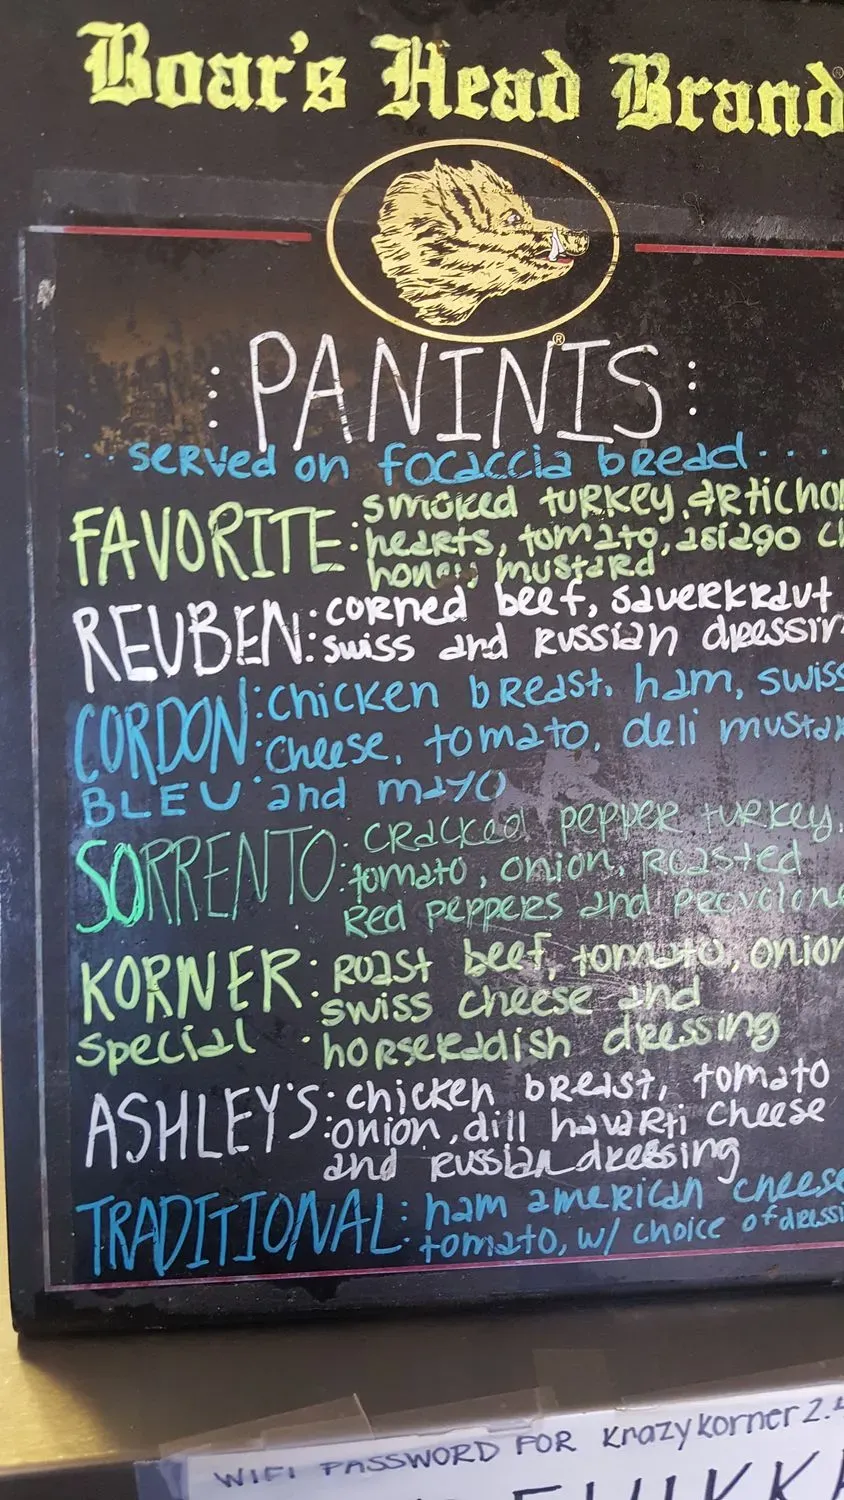 Boar's Head Brand
: PANINIS :
...served on focaccia bread...
FAVORITE: smoked turkey, articho
hearts, tomato, asiago ch
honey mustard
REUBEN: corned beef, saverkraut
swiss and russian dressin
CORDON BLEU: chicken breast, ham, swiss
cheese, tomato, deli mustar
and mayo
SORRENTO: cracked pepper turkey,
tomato, onion, roasted
red peppers and provolone
KORNER special: roast beef, tomato, onion
swiss cheese and
horseradish dressing
ASHLEY'S: chicken breast, tomato
onion, dill havarti cheese
and russian dressing
TRADITIONAL: ham american cheese
tomato, w/ choice of dressi
WIFI PASSWORD FOR Krazykorner 2.4